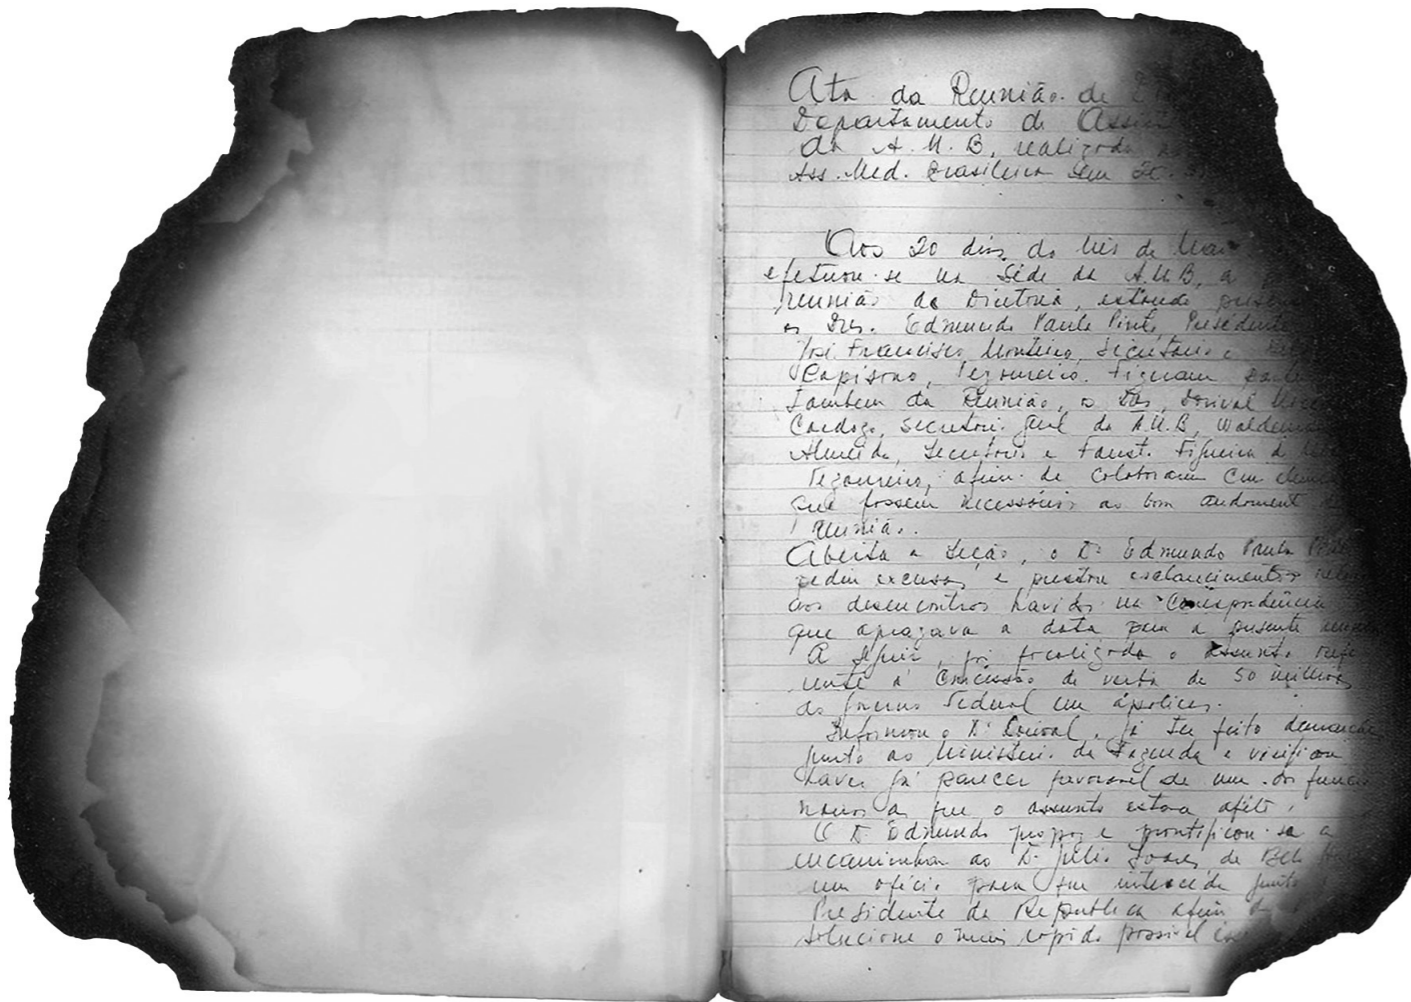 Ata da Reunião de
Departamento de
da A.M.B, realizada
Ass. Med. Brasileira em 20.
Aos 20 dias do mês de
efetuou-se na Séde da A.M.B, a
reunião da Diretoria, estando
os Drs. Edmundo Paula Pinto, Presidente
José Francisco Monteiro, Secretário e
Capisano, Tezoureiro. Figuram
tambem da Reunião, os Drs, Dorival
Cardozo, Secretario geral da A.M.B, Waldemar
Almeida, Secretário e Fausto Figueira de
Tezoureiro, afim de colaborarem com
que fossem necessários ao bom andamento
reunião.
Aberta a Seção, o Dr Edmundo Paula
pediu excusas, e prestou esclarecimentos
aos desencontros havidos na correspondência
que aprazava a data para a presente
A seguir, foi focalizado o assunto refe
rente á concessão de verba de 50 milhões
do Governo Federal em ápolices.
Informou o Dr Dorival, já ter feito
junto ao Ministerio da Fazenda e verificou
haver já parecer favoravel de um dos funcio
narios a que o assunto estava aféto.
O Dr Edmundo propoz e prontificou-se a
encaminhar ao Dr Júlio Soares, de Belo
um ofício para que interceda junto
Presidente da Republica afim
solucione o mais rapido possivel